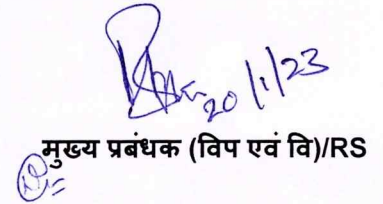 20/1/23
मुख्य प्रबंधक (विप एवं वि)/RS